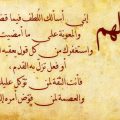 اللهم
إني أسألك اللطف فيما قضيت
والمعونة على ما أمضيت
وأستغفرك من كل قول يعقبه
أو فعل تزل به القدم
فأنت الثقة لمن توكل عليك
والعصمة لمن فوض أمره إليك